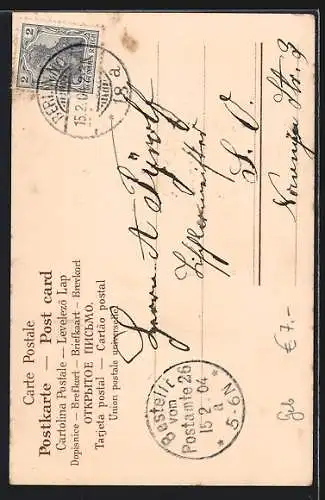 Carte Postale
Postkarte — Post card
Cartolina Postale — Levelező Lap
Dopisnice — Brefkort — Briefkaart — Brevkort
ОТКРЫТОЕ ПИСЬМО.
Tarjeta postal — Cartão postal
Union postale universelle
2 2
DEUTSCHES REICH
BERLIN
15.2.0
* 18 a.
Herrn A
Tischlermeister
S. O.
Str. 3
Bestellt
vom
Postamte 26
15 2 04
a
* 5-6N *
Geb
€ 7.-